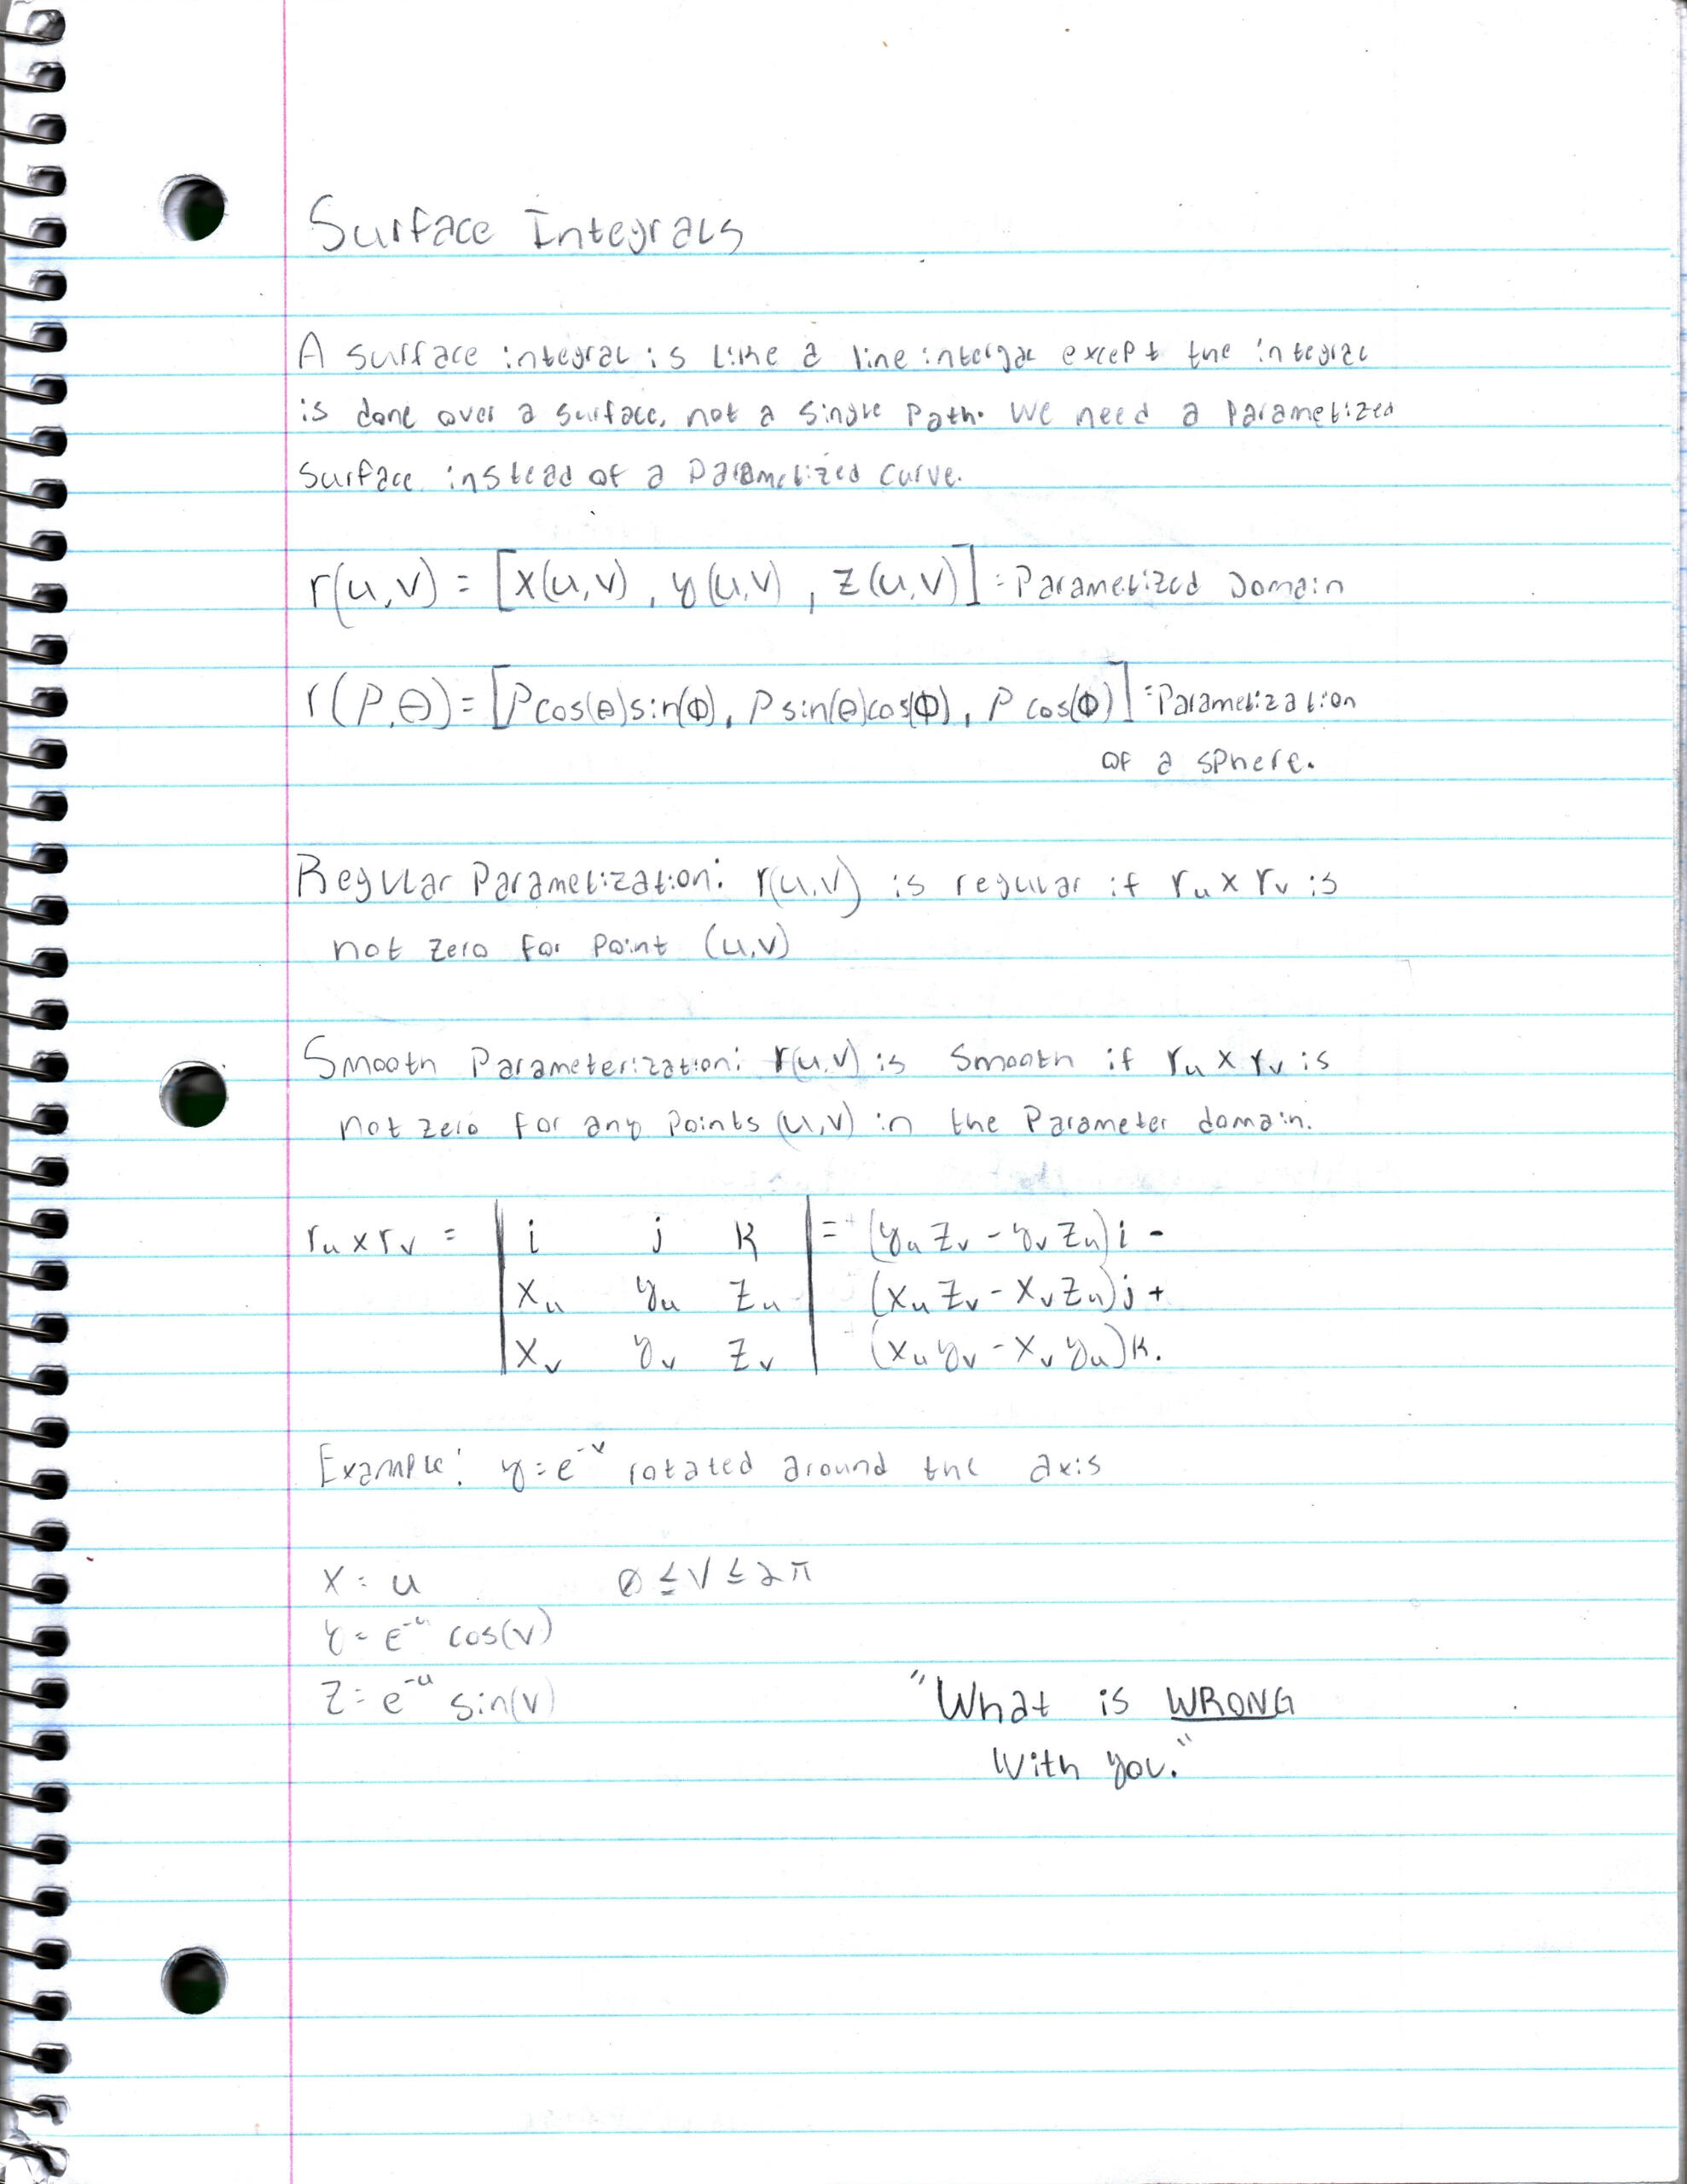 Surface Integrals
A surface integral is like a line intergal except the integral
is done over a surface, not a single path. We need a parametized
surface instead of a parametized curve.
r(u,v) = [x(u,v), y(u,v), z(u,v)] = Parametized Domain
r(ρ,θ) = [ρcos(θ)sin(Φ), ρsin(θ)cos(Φ), ρ cos(Φ)] = Parametization
of a sphere.
Regular Parametization: r(u,v) is regular if rᵤ x rᵥ is
not zero for point (u,v)
Smooth Parameterization: r(u,v) is smooth if rᵤ x rᵥ is
not zero for any points (u,v) in the parameter domain.
rᵤ x rᵥ = | i j k | = (yᵤ zᵥ - yᵥ zᵤ)i -
| xᵤ yᵤ zᵤ | (xᵤ zᵥ - xᵥ zᵤ)j +
| xᵥ yᵥ zᵥ | (xᵤ yᵥ - xᵥ yᵤ)k.
Example: y = e^-x rotated around the axis
x = u 0 ≤ v ≤ 2π
y = e^-u cos(v)
z = e^-u sin(v)
"What is WRONG
with you."